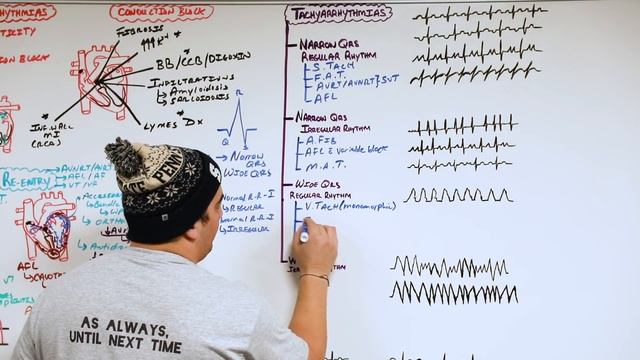 HYTHMIAS
CONDUCTION BLOCK
FIBROSIS
BB/CCB/DIGOXIN
INFILTRATIONS
↳ Amyloidosis
↳ SARCOIDOSIS
LYMES Dx
INF. WALL
MI
(RCA)
RE-ENTRY
AVNRT/AVRT
AFL/AF
VT/VF
AFL
Q
R
S
→ NARROW
QRS
WIDE QRS
Normal R-R-I
↳ REGULAR
R-R-I
↳ IRREGULAR
TACHYARRHYTHMIAS
NARROW QRS
REGULAR RHYTHM
S. TACH
F.A.T.
AVRT/AVNRT} SVT
AFL
NARROW QRS
IRREGULAR RHYTHM
A. FIB
AFL c̄ variable block
M.A.T.
WIDE QRS
REGULAR RHYTHM
V. TACH (monomorphic)
PENN
AS ALWAYS,
UNTIL NEXT TIME